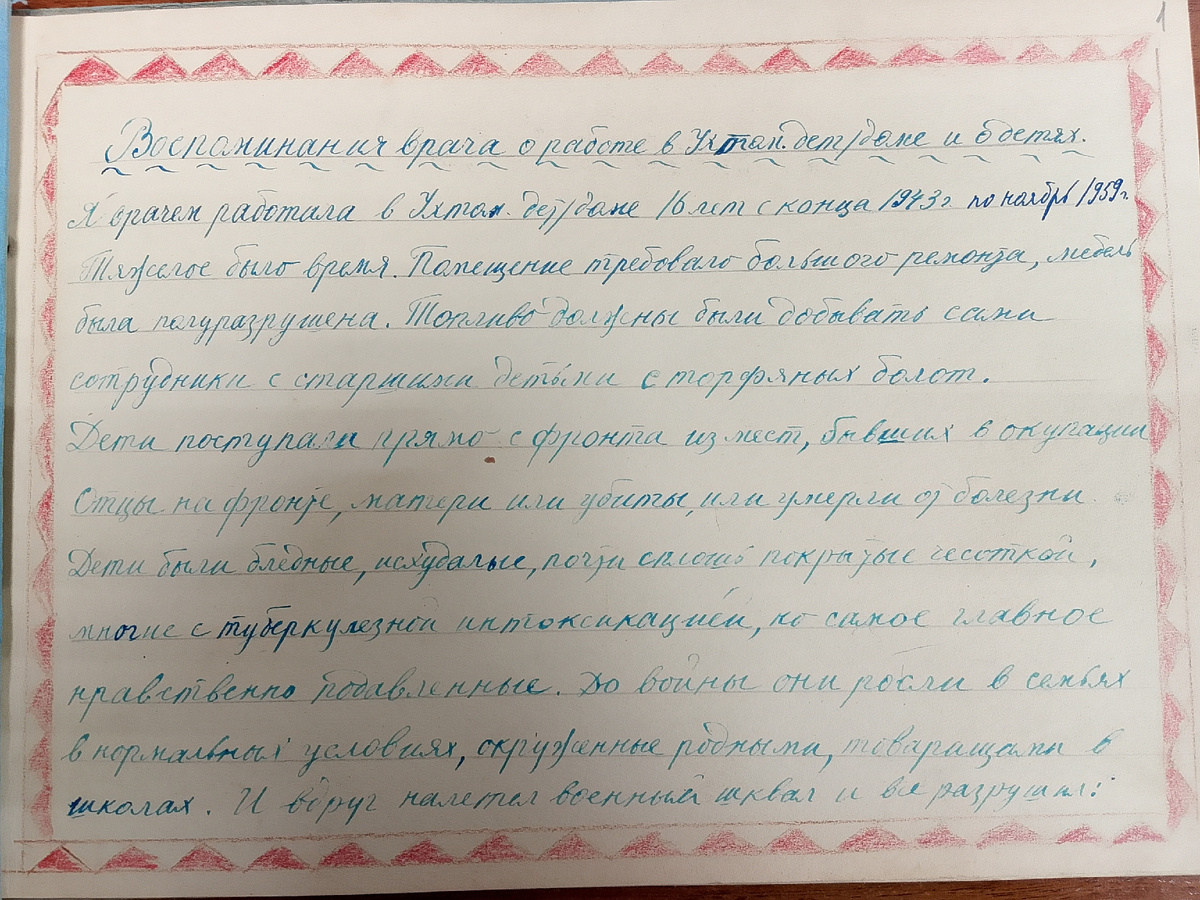 1
Воспоминания врача о работе в Ухтом. дет/доме и о детях.
Я врачем работала в Ухтом. дет/доме 16 лет с конца 1943г по ноябрь 1959г.
Тяжелое было время. Помещение требовало большого ремонта, мебель
была полуразрушена. Топливо должны были добывать сами
сотрудники с старшими детьми с торфяных болот.
Дети поступали прямо с фронта из мест, бывших в окупации
Отцы на фронте, матери или убиты, или умерли от болезни
Дети были бледные, исхудалые, почти сплошь покрытые чесоткой,
многие с туберкулезной интоксикацией, но самое главное
нравственно подавленные. До войны они росли в семьях
в нормальных условиях, окруженные родными, товарищами в
школах. И вдруг налетел военный шквал и все разрушил: